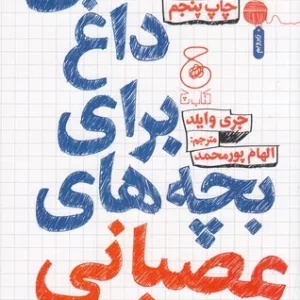 چاپ پنجم
داغ
کتاب چ
جری وایلد
مترجم:
الهام پورمحمد
برای
بچه‌های
عصبانی